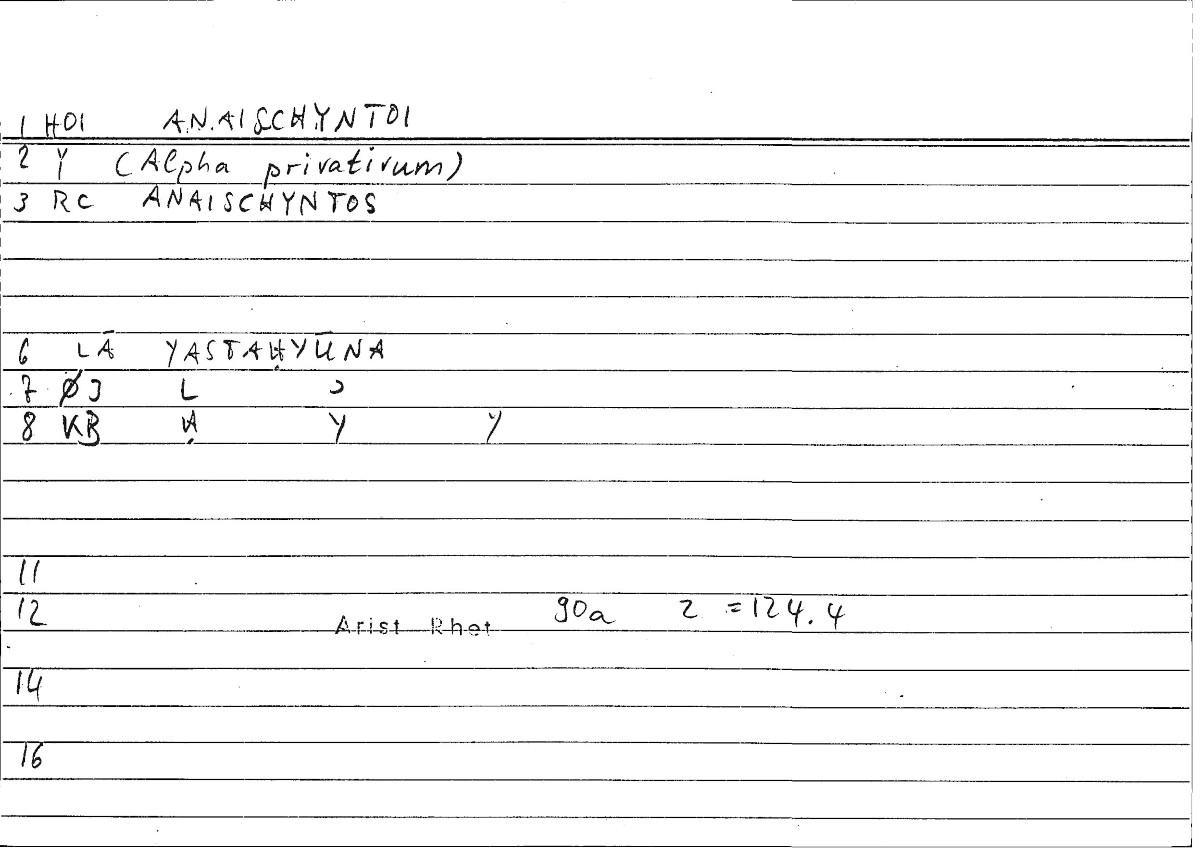 1 HOI ANAISCHYNTOI
2 Y (Alpha privativum)
3 RC ANAISCHYNTOS
6 LĀ YASTAḤYŪNA
7 ØJ L Ɔ
8 KB Ḥ Y Y
11
12 Arist Rhet 90a 2 =124.4
14
16